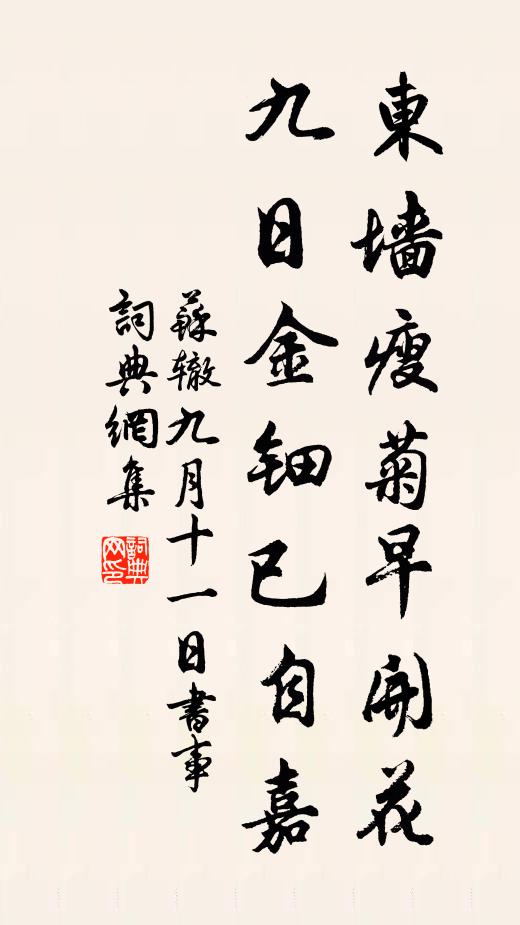 東墙瘦菊早開花
九日金钿已自嘉
蘇辙九月十一日書事
詞典網集
詞典网印